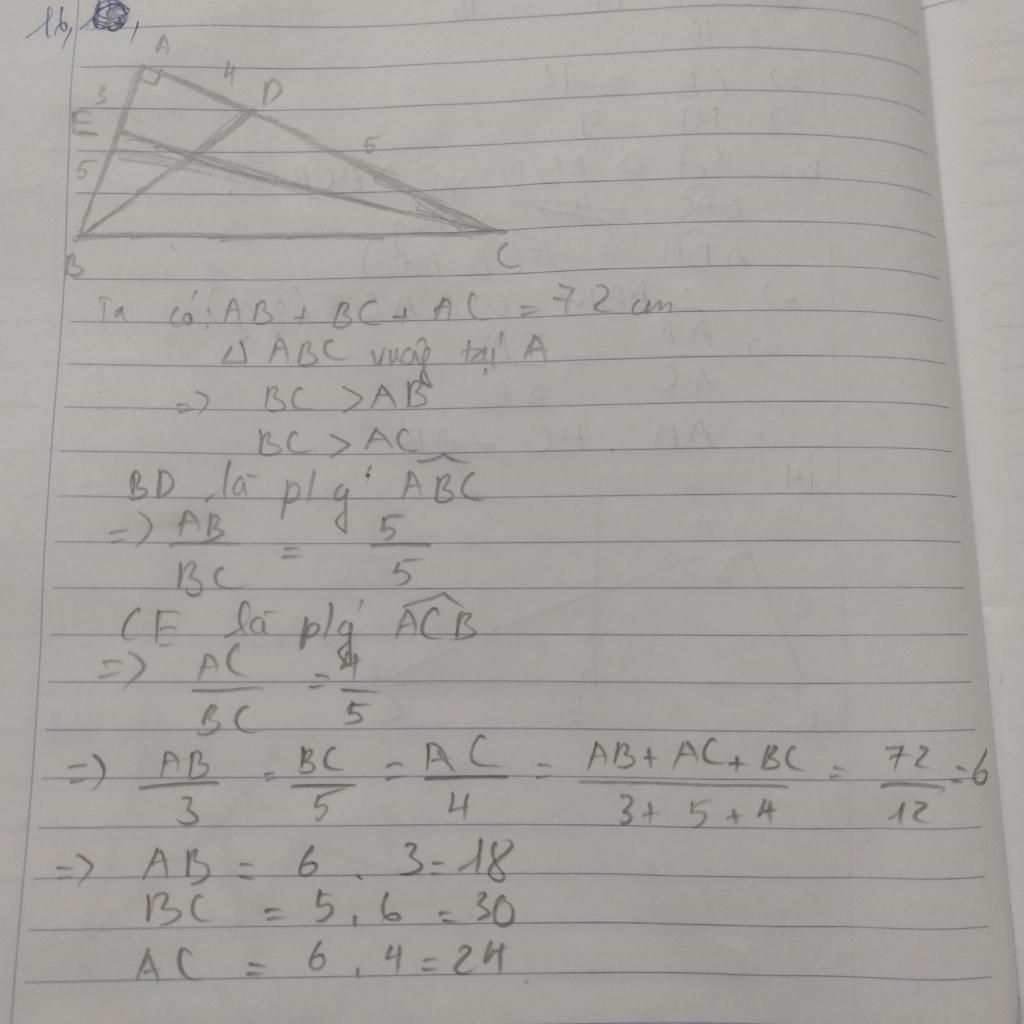 16,
A
4
D
3
E
5
5
B
C
Ta có: AB + BC + AC = 72 cm
Δ ABC vuông tại A
=> BC > AB
BC > AC
BD là p/g ABC
=> AB/BC = 5/5
CE là p/g ACB
=> AC/BC = 4/5
=> AB/3 = BC/5 = AC/4 = AB + AC + BC/3 + 5 + 4 = 72/12 = 6
=> AB = 6 . 3 = 18
BC = 5 . 6 = 30
AC = 6 . 4 = 24